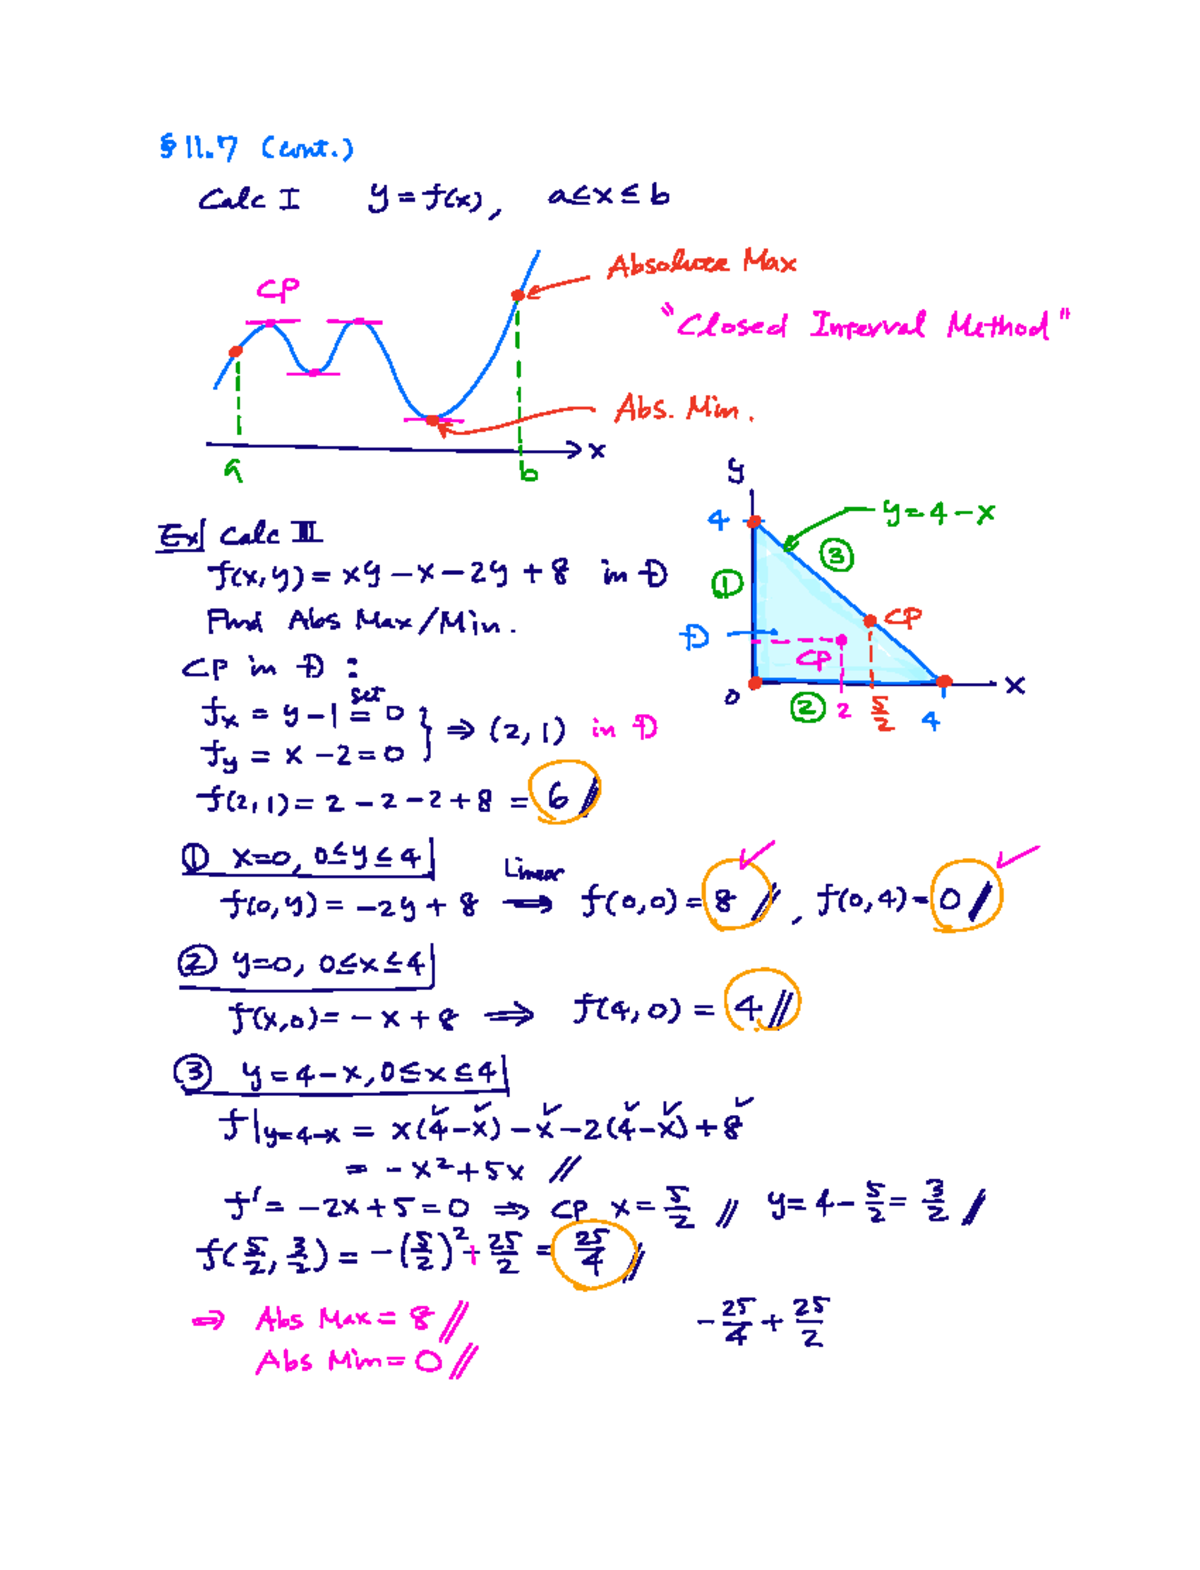 § 11.7 (cont.)
Calc I y = f(x), a ≤ x ≤ b
Absolute Max
CP
"Closed Interval Method"
Abs. Min.
x
a b
y
4 y = 4 - x
③
①
CP
D
CP
0 ② 2 5/2 4 x
Ex| Calc III
f(x,y) = xy - x - 2y + 8 in D
Find Abs Max/Min.
CP in D :
set
fx = y - 1 = 0 } ⇒ (2, 1) in D
fy = x - 2 = 0
f(2,1) = 2 - 2 - 2 + 8 = 6 //
① x=0, 0≤y≤4|
Linear
f(0,y) = -2y + 8 ⟹ f(0,0) = 8 //, f(0,4) = 0 //
② y=0, 0≤x≤4|
f(x,0) = - x + 8 ⟹ f(4,0) = 4 //
③ y = 4 - x, 0≤x≤4|
f|y=4-x = x(4-x) - x - 2(4-x) + 8
= - x² + 5x //
f' = -2x + 5 = 0 ⇒ CP x = 5/2 // y = 4 - 5/2 = 3/2 //
f(5/2, 3/2) = -(5/2)² + 25/2 = 25/4 //
⇒ Abs Max = 8 //
- 25/4 + 25/2
Abs Min = 0 //